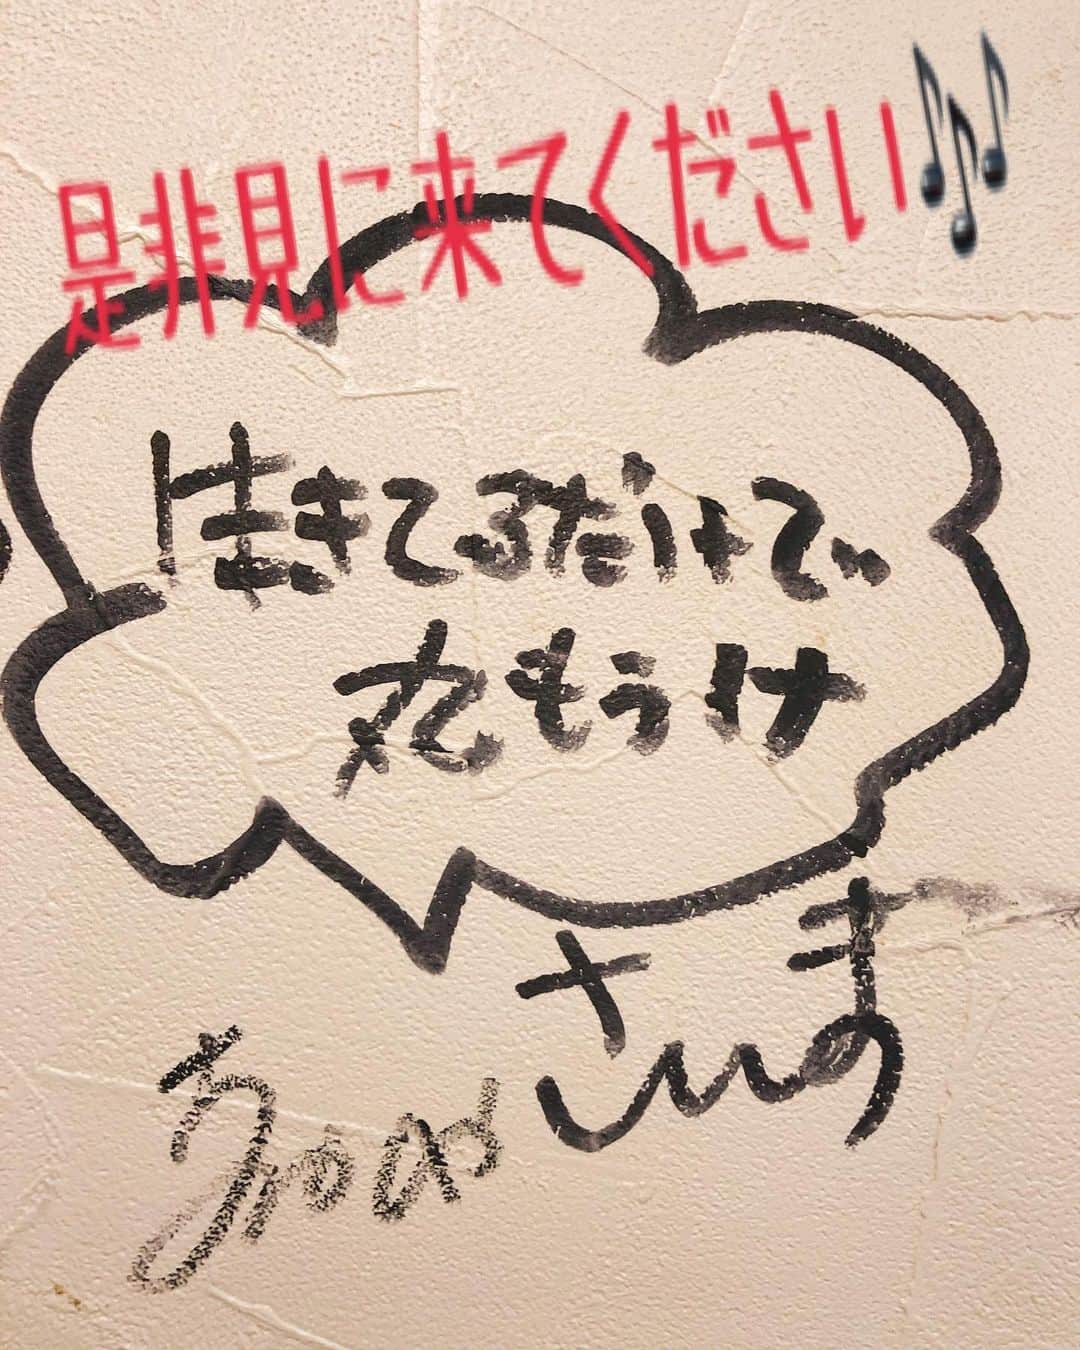 是非見に来てください🎵
生きてるだけで
丸もうけ
さんま